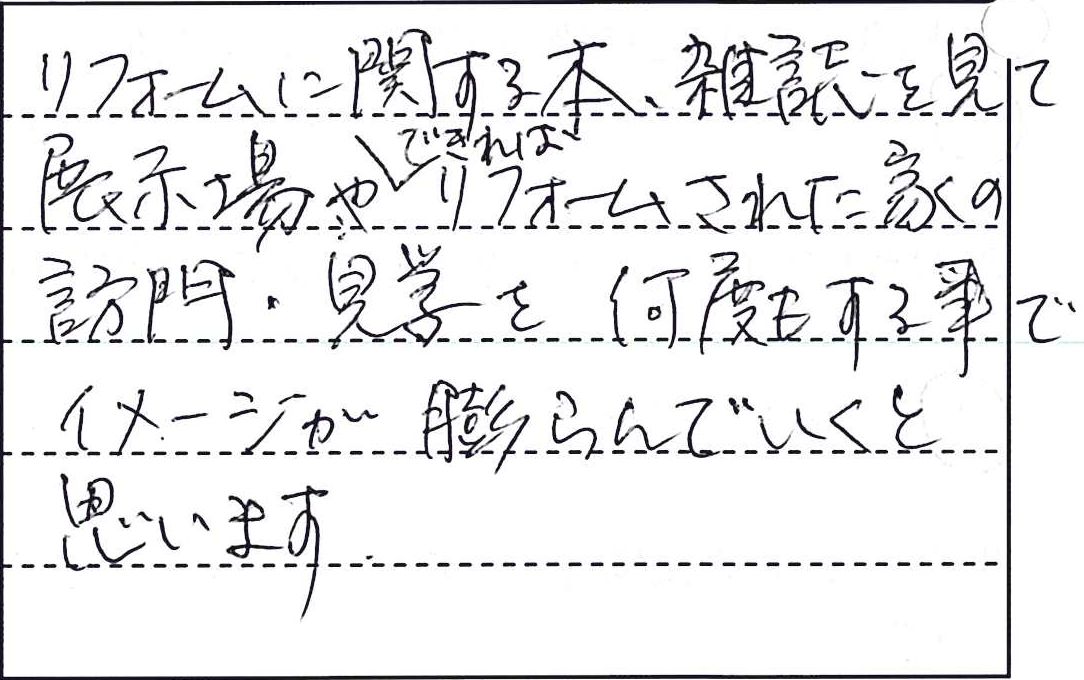 リフォームに関する本、雑誌を見て
展示場やできればリフォームされた家の
訪問・見学を何度もする事で
イメージが膨らんでいくと
思います